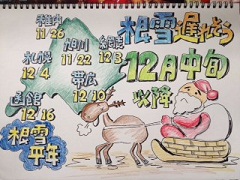 根雪遅れそう
12月中旬
以降
稚内
11/26
旭川
11/22
網走
12/3
札幌
12/4
帯広
12/10
函館
12/16
根雪
平年